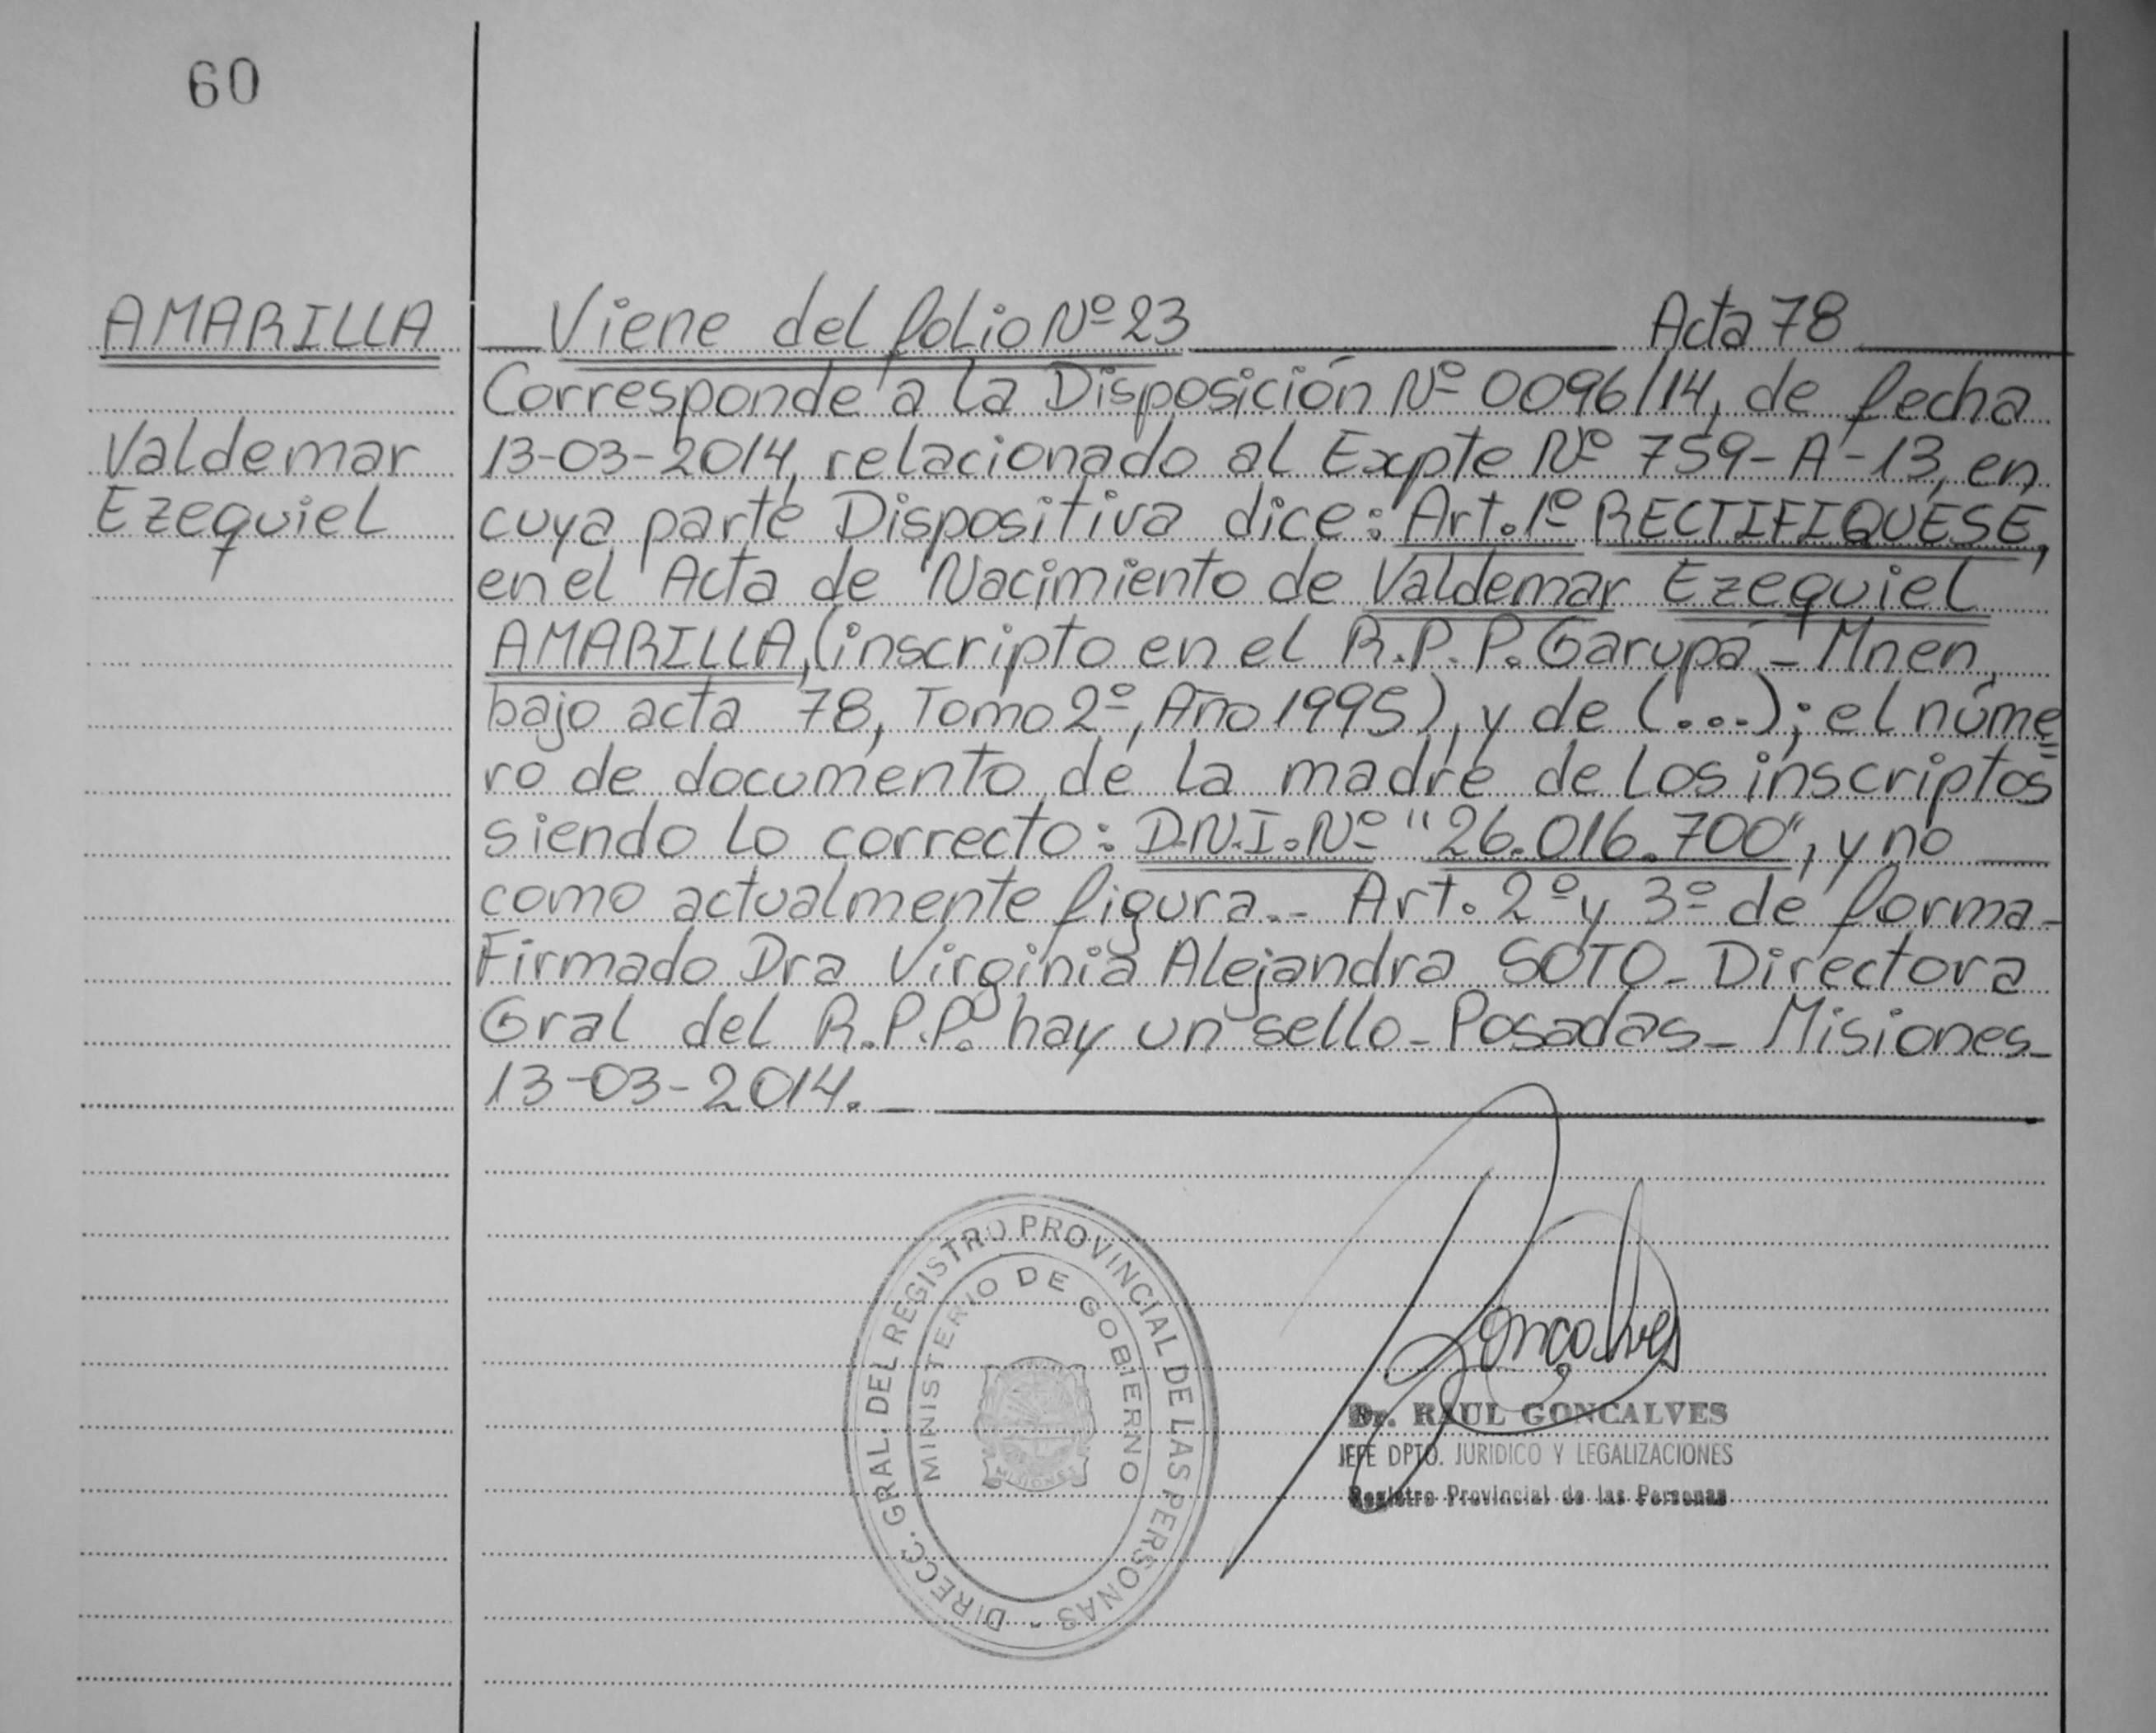 60
AMARILLA
Valdemar
Ezequiel
Viene del folio Nº 23 Acta 78
Corresponde a la Disposición Nº 0096/14, de fecha
13-03-2014, relacionado al Expte Nº 759-A-13, en
cuya parte Dispositiva dice: Art. 1º RECTIFIQUESE,
en el Acta de Nacimiento de Valdemar Ezequiel
AMARILLA, (inscripto en el R.P.P. Garupá - Mnen
bajo acta 78, Tomo 2º, Año 1995), y de (...); el núme
ro de documento de la madre de los inscriptos
siendo lo correcto: D.N.I. Nº "26.016.700", y no
como actualmente figura.- Art. 2º y 3º de forma-
Firmado Dra Virginia Alejandra SOTO- Directora
Gral del R.P.P. hay un sello- Posadas- Misiones-
13-03-2014.-
DIRECC. GRAL. DEL REGISTRO PROVINCIAL DE LAS PERSONAS -
MINISTERIO DE GOBIERNO
MISIONES
Goncalves
Dr. RAUL GONCALVES
JEFE DPTO. JURIDICO Y LEGALIZACIONES
Registro Provincial de las Personas